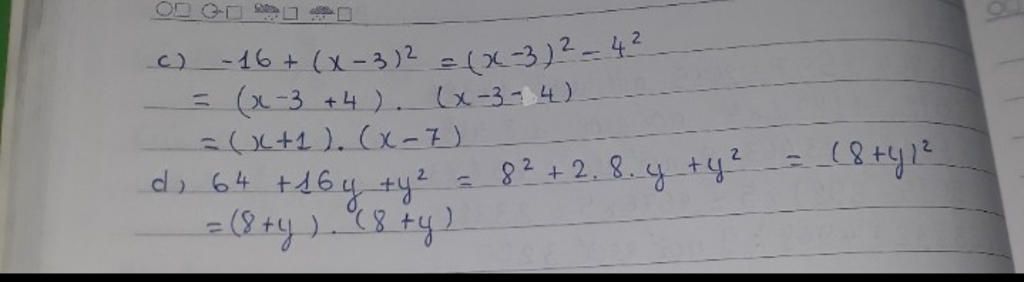 c) -16 + (x-3)² = (x-3)² - 4²
= (x-3 +4). (x-3-4)
= (x+1). (x-7)
d) 64 +16y +y² = 8² + 2.8.y +y² = (8+y)²
= (8+y). (8+y)